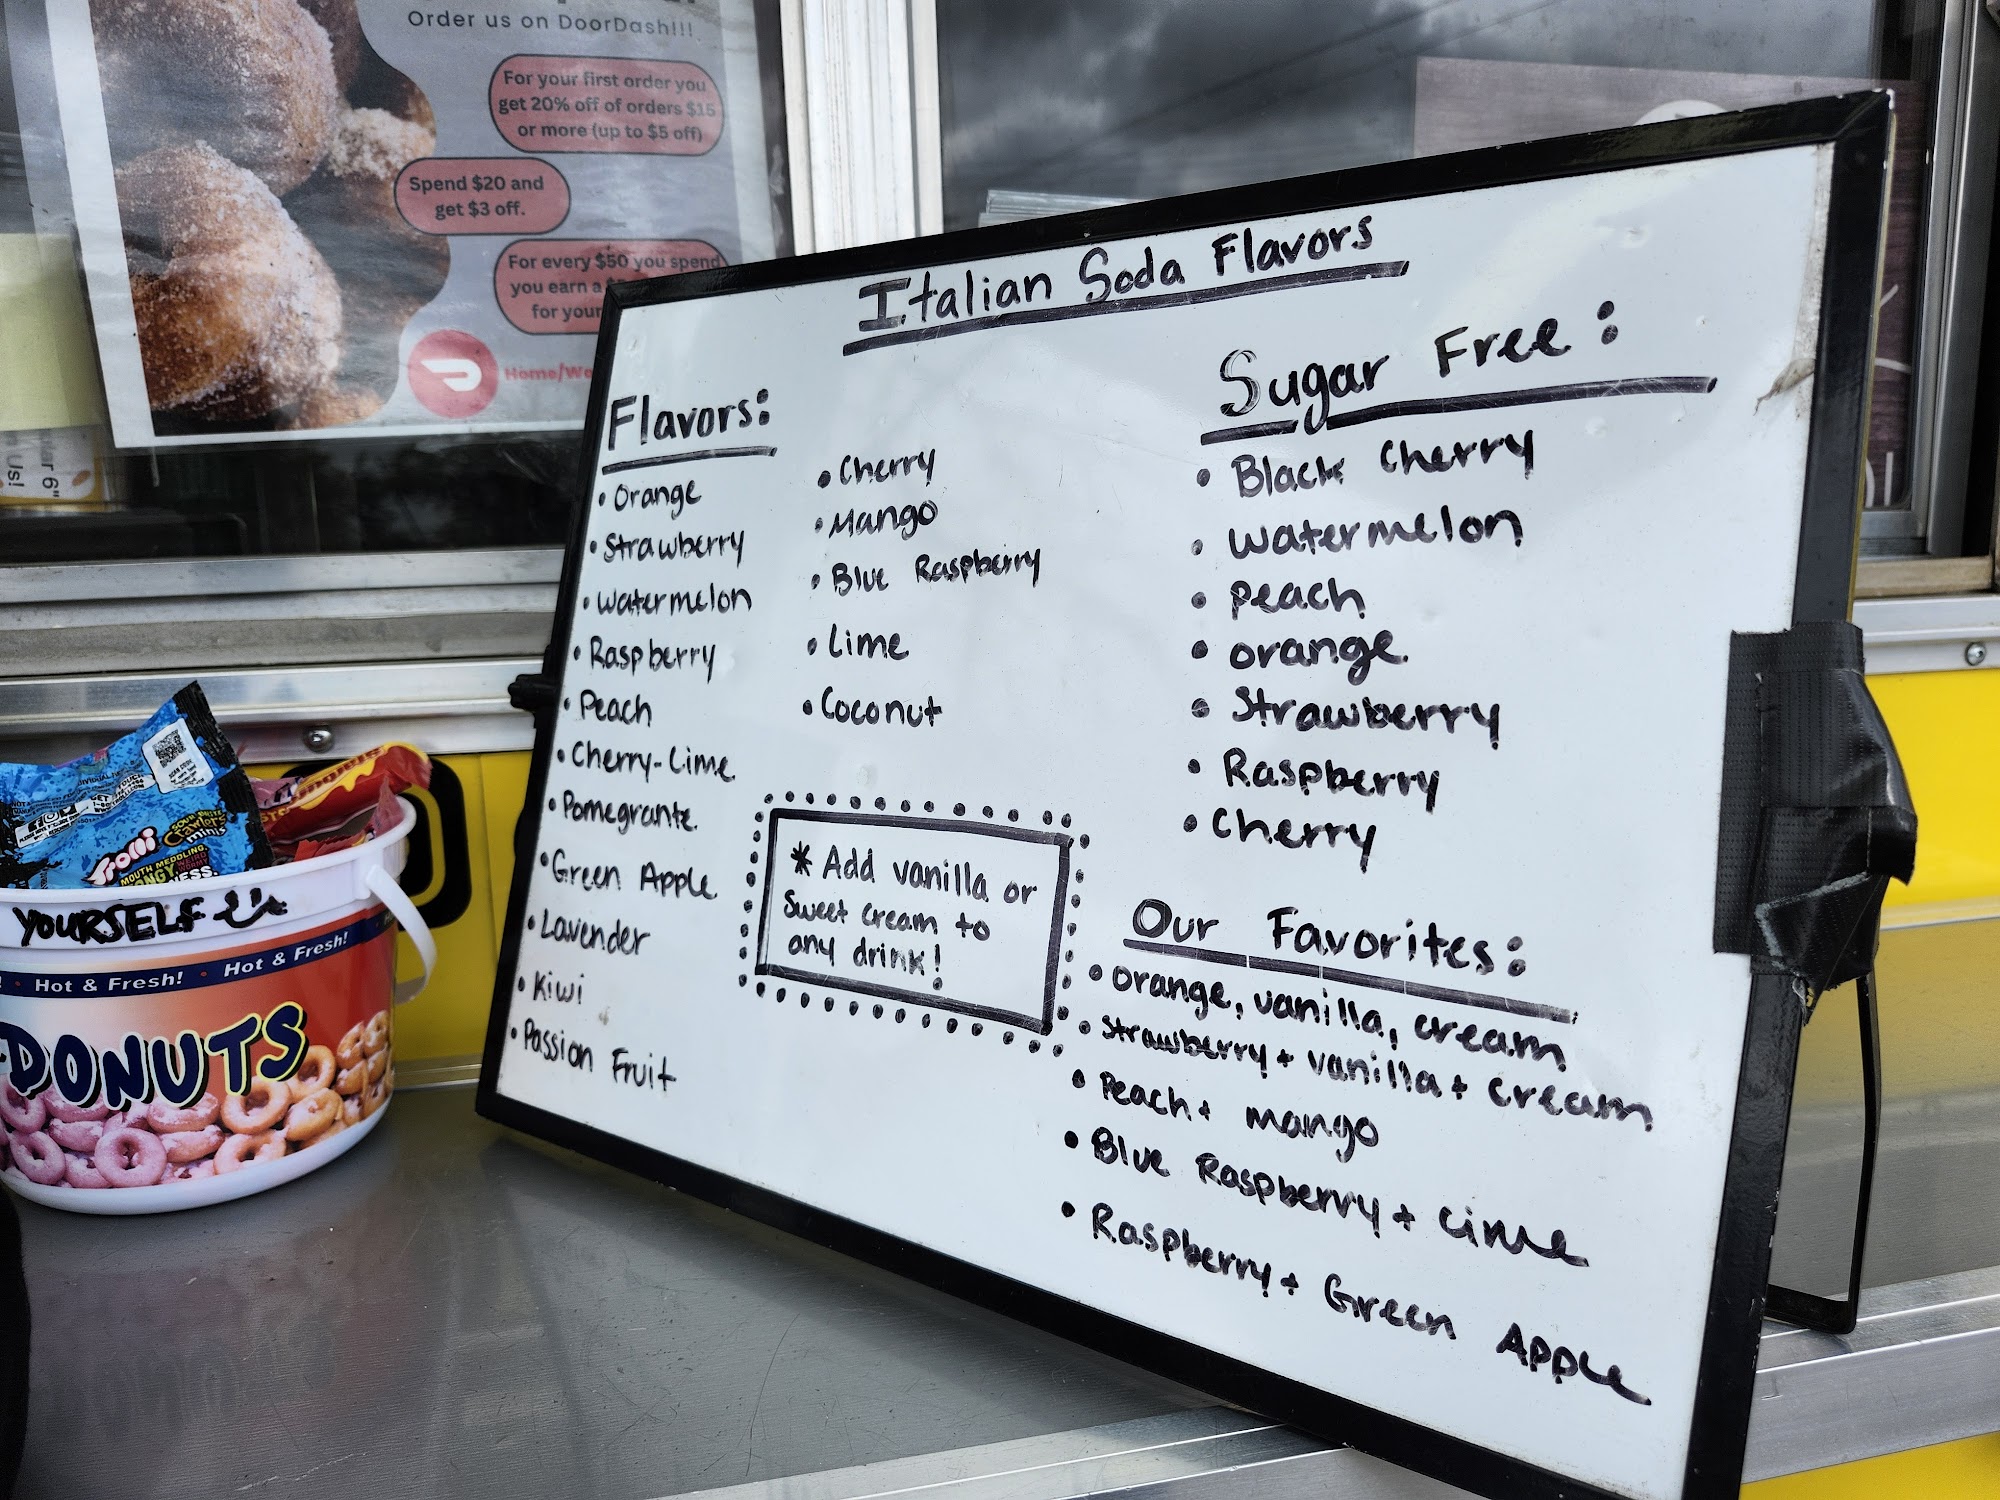 Order us on DoorDash!!!
For your first order you
get 20% off of orders $15
or more (up to $5 off)
Spend $20 and
get $3 off.
For every $50 you spend
you earn a
for your
Home/Wa
Italian Soda Flavors
Flavors:
• Orange
• Strawberry
• Watermelon
• Raspberry
• Peach
• Cherry-Lime
• Pomegrante
• Green Apple
• Lavender
• Kiwi
• Passion Fruit
• Cherry
• Mango
• Blue Raspberry
• Lime
• Coconut
* Add vanilla or
Sweet cream to
any drink!
Sugar Free:
• Black Cherry
• Watermelon
• Peach
• Orange
• Strawberry
• Raspberry
• Cherry
Our Favorites:
• Orange, vanilla, cream
• Strawberry + vanilla + cream
• Peach + mango
• Blue Raspberry + Lime
• Raspberry + Green Apple
ular 6"
Us!
SCAN CODE
Trolli
SOUR BRITE
Crawlers
minis
MOUTH MEDDLING,
WEIRD
YOURSELF
• Hot & Fresh! • Hot & Fresh!
DONUTS